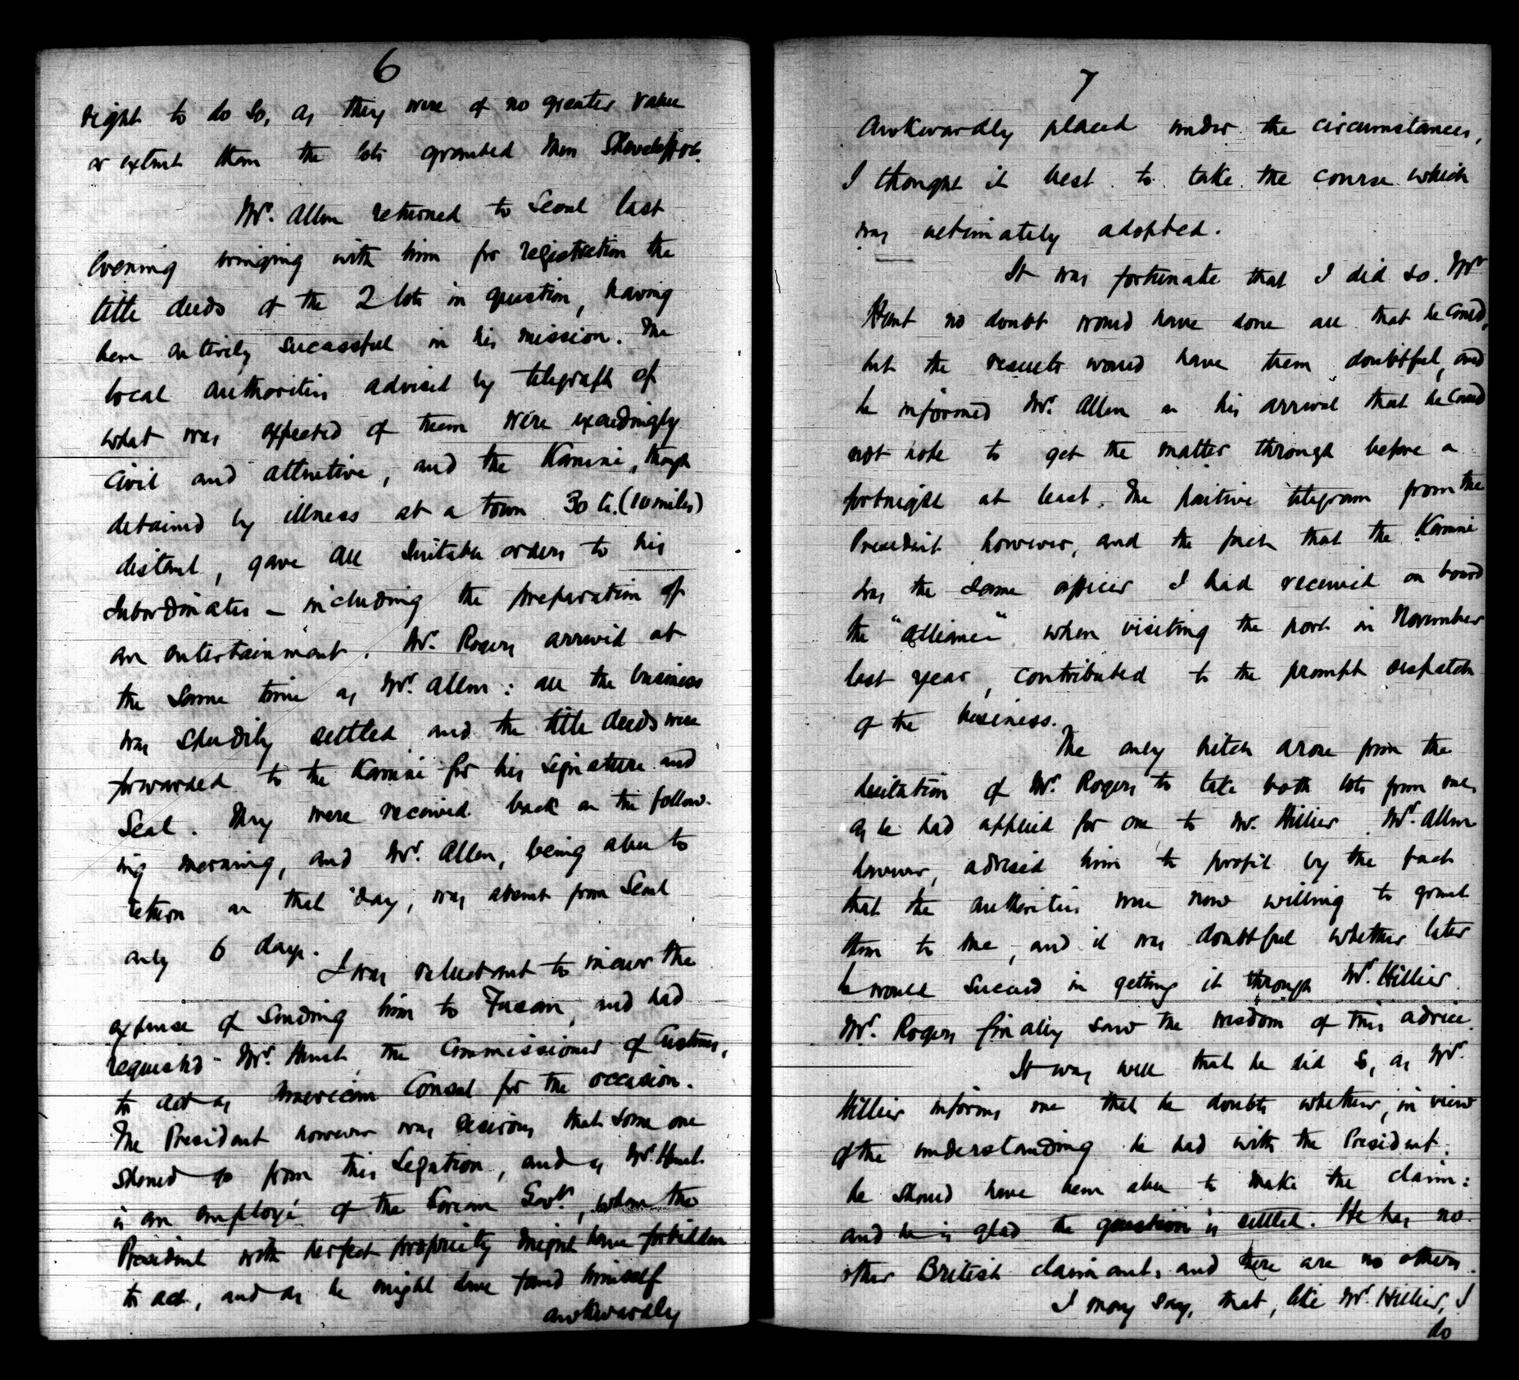 6
right to do so, as they were of no greater value
or extent than the lots granted Messrs
Mr. Allen returned to Seoul last
Evening bringing with him for registration the
title deeds of the 2 lots in question, having
been entirely successful in his mission. The
local authorities advised by telegraph of
what was expected of them were exceedingly
civil and attentive, and the Kamni, though
detained by illness at a town 30 li. (10 miles)
distant, gave all suitable orders to his
Subordinates – including the preparation of
an entertainment. Mr. Rogers arrived at
the same time as Mr. Allen: all the business
was speedily settled and the title deeds were
forwarded to the Kamni for his signature and
Seal. They were received back on the follow-
ing morning, and Mr. Allen, being able to
return on that day, was absent from Seoul
only 6 days.
I was reluctant to incur the
expense of sending him to Fusan, and had
requested Mr. Hunt, the Commissioner of Customs,
to act as American Consul for the occasion.
The President however was desirous that some one
should go from this Legation, and as Mr. Hunt
is an employé of the Corean Govt., whom the
President with perfect propriety might have forbidden
to act, and as he might have found himself
awkwardly
7
Awkwardly placed under the circumstances,
I thought it best to take the course which
was ultimately adopted.
It was fortunate that I did so. Mr
Hunt no doubt would have done all that he could,
but the results would have been doubtful, and
he informed Mr. Allen on his arrival that he could
not hope to get the matter through before a
fortnight at least. The positive telegram from the
President however, and the fact that the Kamni
was the same officer I had received on board
the "Alliance" when visiting the port in November
last year, contributed to the prompt dispatch
of the business.
The only hitch arose from the
hesitation of Mr. Rogers to take both lots from me,
as he had applied for one to Mr. Hillier. Mr. Allen
however, advised him to profit by the fact
that the authorities were now willing to grant
them to me, and it was doubtful whether later
he would succeed in getting it through Mr. Hillier.
Mr. Rogers finally saw the wisdom of this advice.
It was well that he did so, as Mr.
Hillier informs me that he doubts whether, in view
of the understanding he had with the President,
he should have been able to make the claim:
and he is glad the question is settled. He has no
other British claimants and there are no others.
I may say, that, like Mr. Hillier, I
do